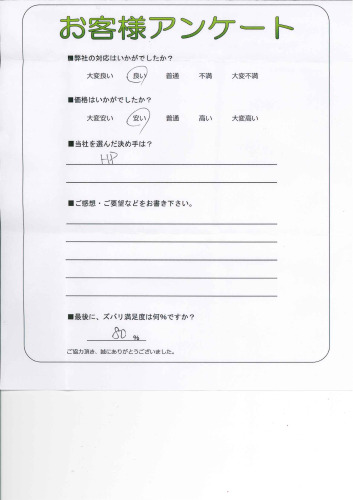 お客様アンケート
■弊社の対応はいかがでしたか？
大変良い 良い 普通 不満 大変不満
■価格はいかがでしたか？
大変安い 安い 普通 高い 大変高い
■当社を選んだ決め手は？
HP
■ご感想・ご要望などをお書き下さい。
■最後に、ズバリ満足度は何%ですか？
80 %
ご協力頂き、誠にありがとうございました。